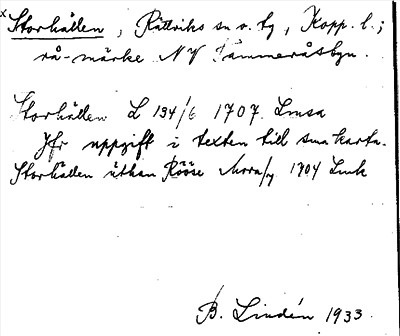 x Storhällen, Rättviks sn o. tg, Kopp. l.;
rå-märke NV Tammeråsbyn.
Storhällen L 134/6 1707 Lmsa
Jfr uppgift i texten till sma karta.
Storhällen utkan Rööse Mora/ 1704 Lmk
B. Lindén 1933